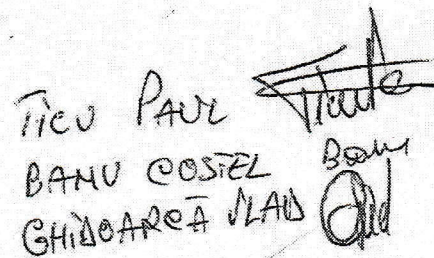 TICU PAUL
BANU COSTEL Banu
GHIDOARCĂ VLAD